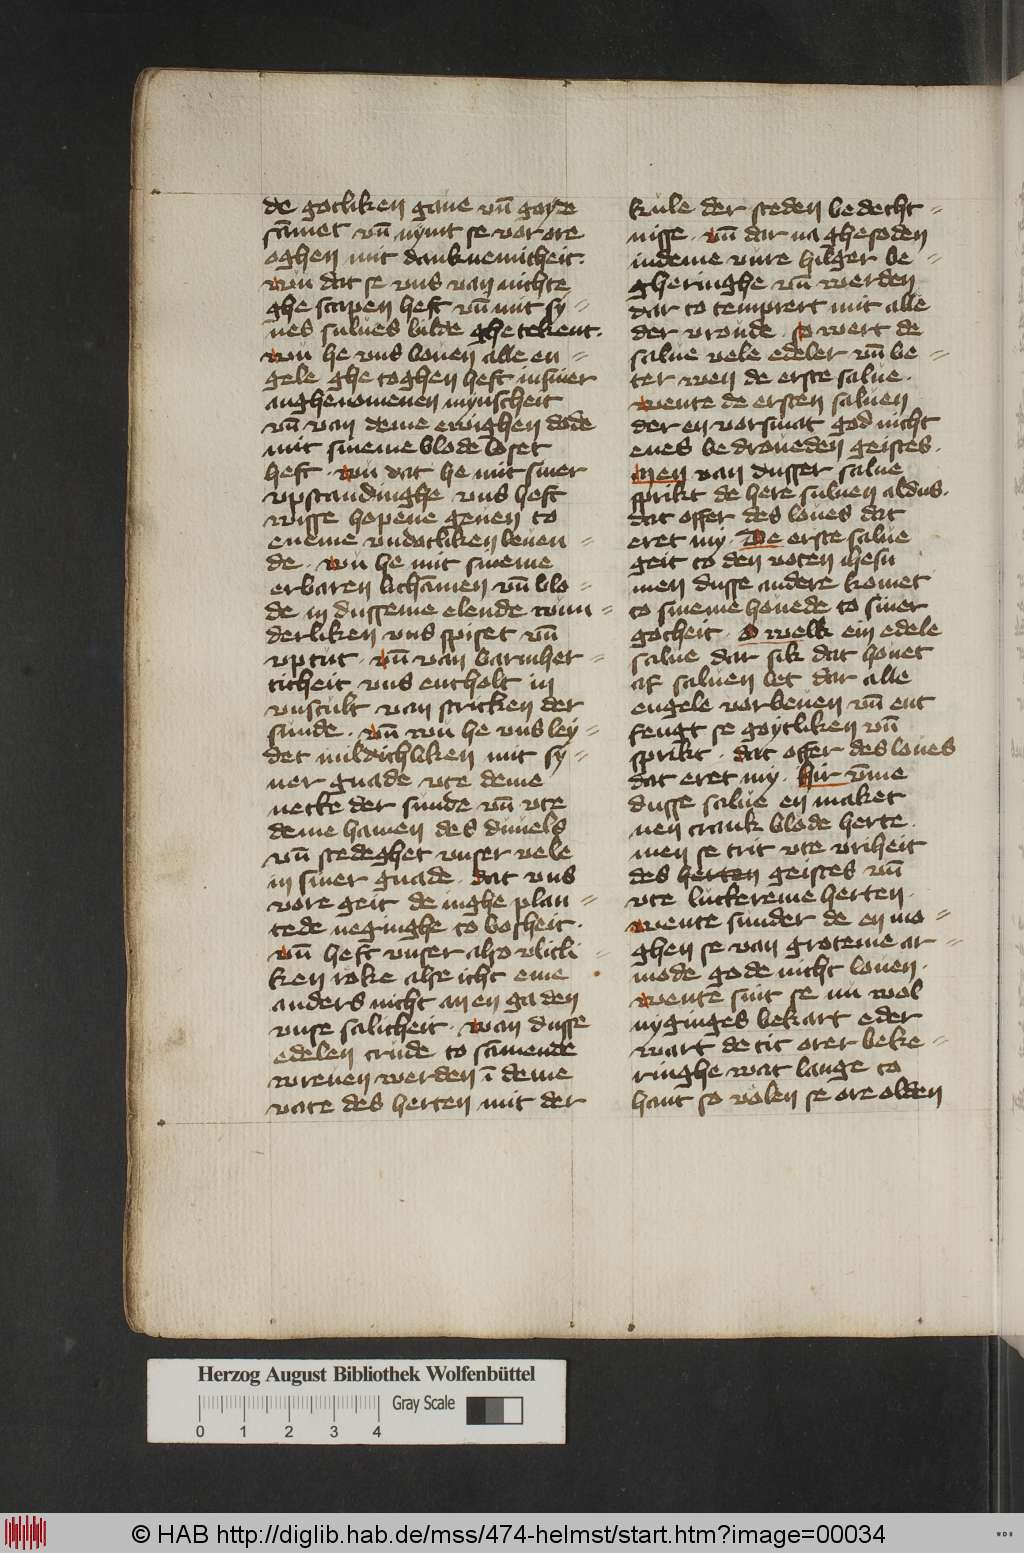 de gotliken gaue vn̄ goyde
sāmet vn̄ nymt se vor ore
oghen mit danknemicheit·
wu dat se vns van nichte
ghe scapen heft vn̄ mit sy=
nes sulues bilde ghe tekent·
wu he vns bouen alle en=
gele ghe toghen heft in siner
anghenomenen mynscheit
vn̄ van deme ewighen dode
mit sineme blode loset
heft· wu dat he mit siner
vpstandinghe vns heft
wisse hopene geuen to
eneme vndotliken leuen=
de· wu he mit sineme
erbaren lichāmen vn̄ blo=
de in dusseme elende wun=
derliken vns spiset vn̄
vptut· vn̄ van barmher=
ticheit vns entholt in
vnscult van stricken der
sunde· vn̄ wu he vns ley=
det mildichliken mit sy=
ner gnade vte deme
necke der sunde vn̄ vte
deme hamen des duuels
vn̄ stedeghet vnser vele
in siner gnade· dat vns
vore geit de nighe plan=
tede neginghe to bosheit·
vn̄ heft vnser also vliti=
ken roke alse icht eme
anders nicht an en ga den
vnse salicheit· wan dusse
edelen crude to sāmende
wreuen werden ī deme
vate des herten mit der
kule der steden bedecht=
nisse· vn̄ dar na ghesoden
in deme vure hilger be=
gheringhe vn̄ werden
dar to temprert mit alle
der vroude· so wert de
salue vele edeler vn̄ be=
ter wen de erste salue·
wente de ersten saluen
der en vorsmat god nicht
enes bedroueden geistes·
Men van dusser salue
sprikt de here suluen aldus·
dat offer des loues dat
eret my· De erste salue
geit to den voten ihesu
men dusse andere komet
to sineme houede to siner
gotheit· O welk ein edele
salue dar sik dat houet
af saluen let dar alle
engele vor beuen vn̄ ent
fengt se goytliken vn̄
sprikt· dat offer des loues
dat eret my· Hir v̄me
dusse salue en maket
nen crank blode herte·
men se trit vte vriheit
des herten geistes vn̄
vte luckereme herten·
wente sunder de en mo=
ghen se van groteme ar=
mode gode nicht louen·
wente sint se nu wol
nyginges bekart eder
wart de tit orer beke=
ringhe wat lange to
hant so volen se ore olden
Herzog August Bibliothek Wolfenbüttel
Gray Scale
0 1 2 3 4
© HAB http://diglib.hab.de/mss/474-helmst/start.htm?image=00034